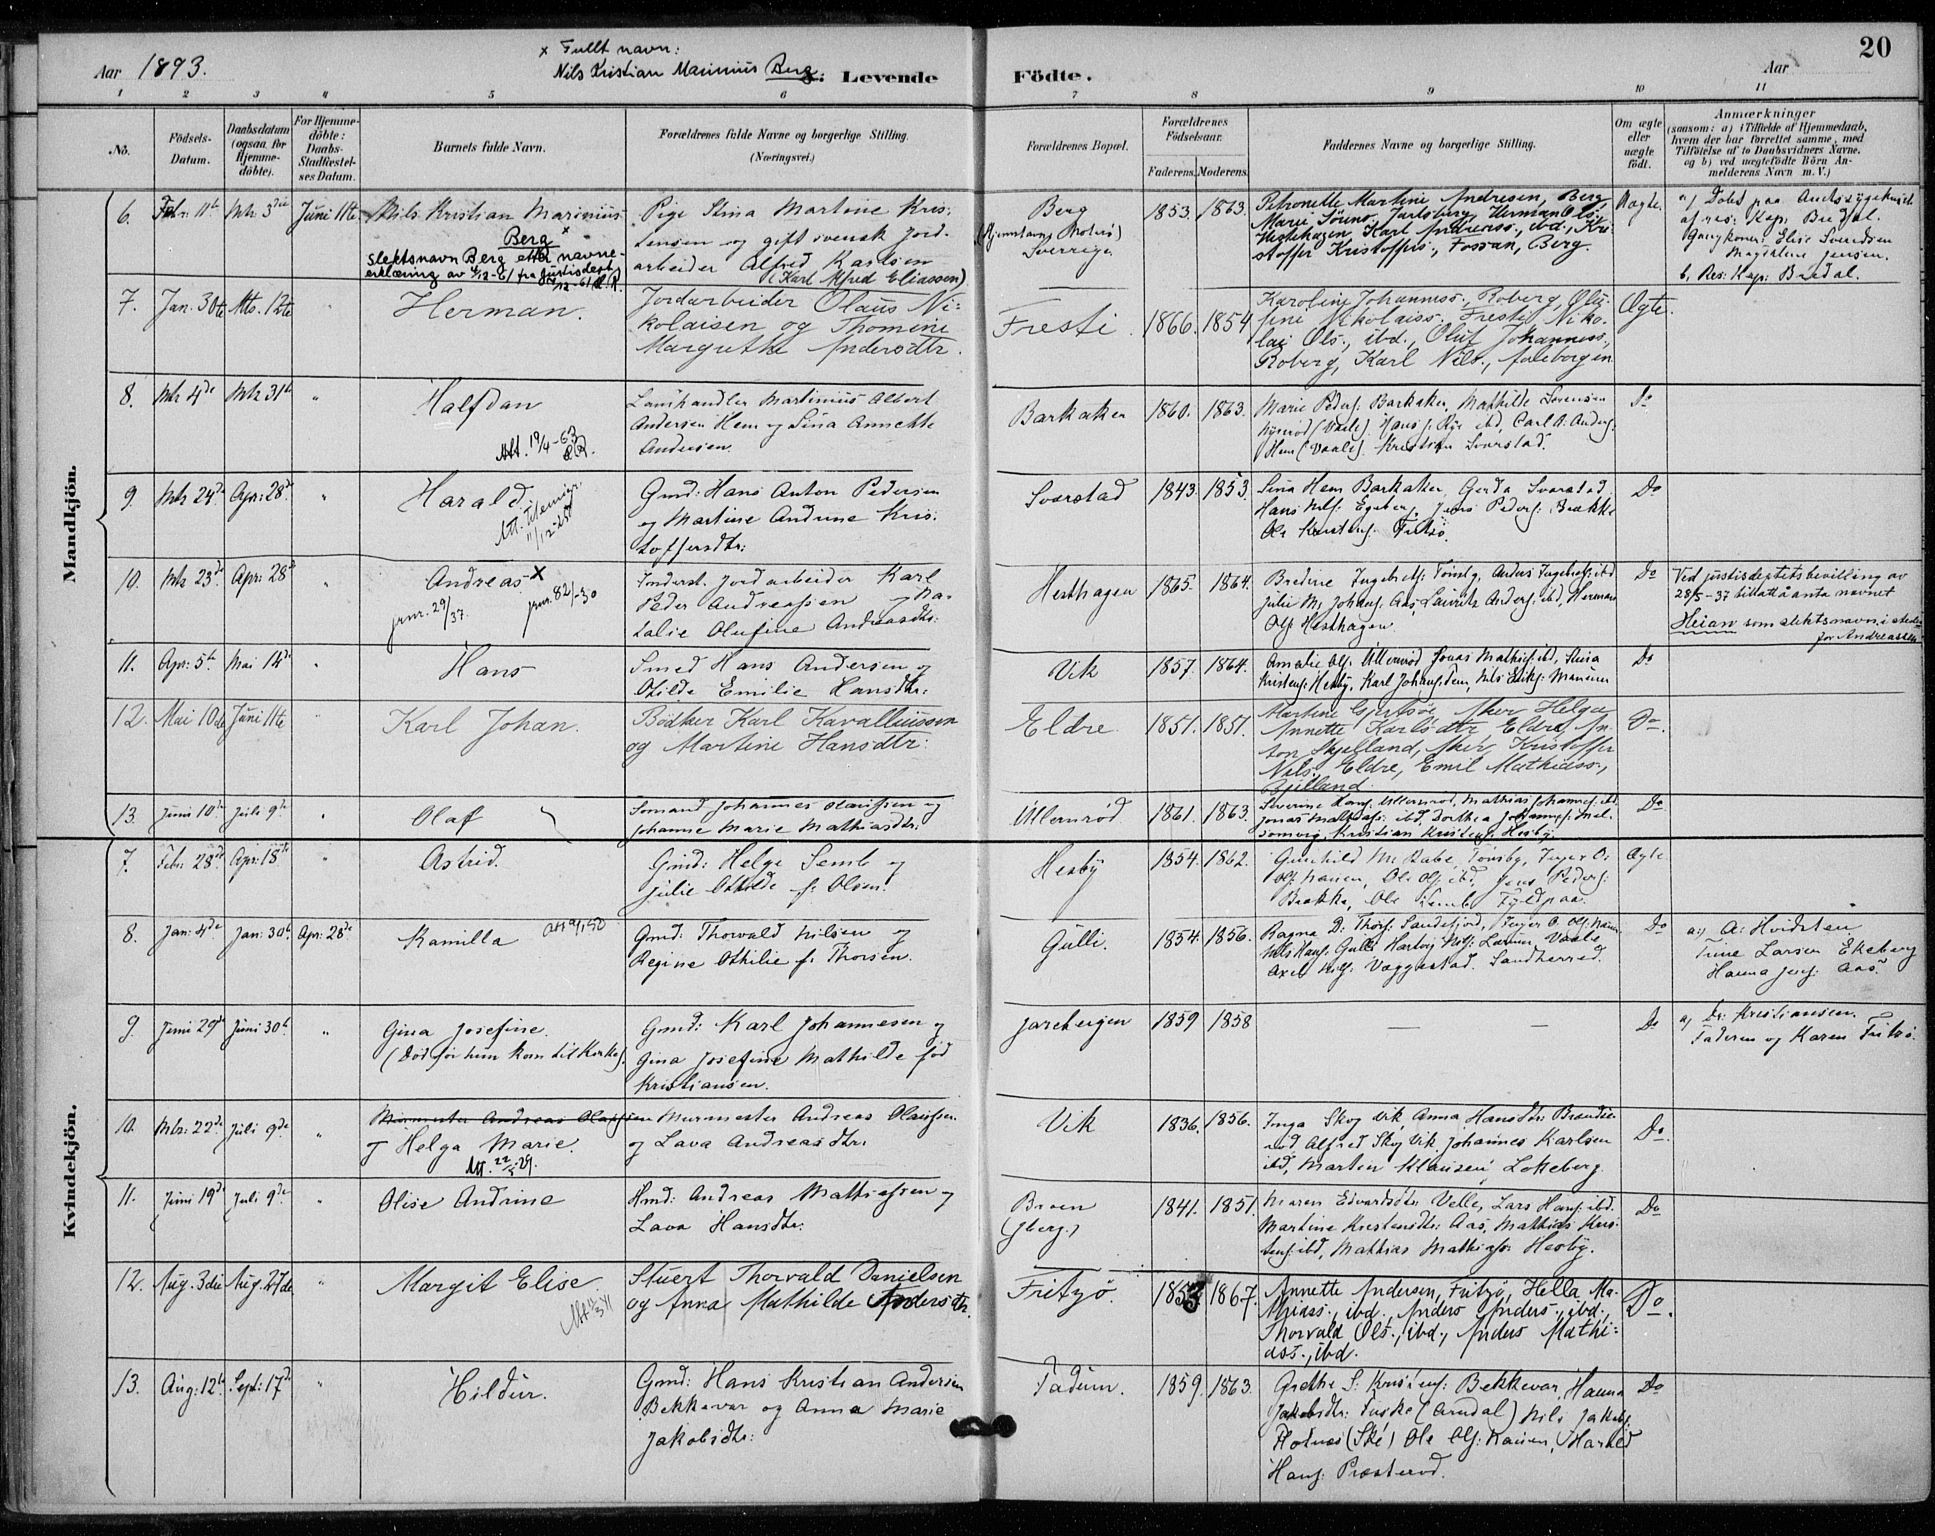 Aar 1893.
x Fullt navn:
Nils Kristian Marinius Berg.
Levende Födte.
Aar
20
1 2 3 4 5 6 7 8 9 10 11
No.
Födsels-Datum.
Daabsdatum (ogsaa for Hjemme-döbte).
For Hjemme-döbte: Daabs-Stadfæstel-ses Datum.
Barnets fulde Navn.
Forældrenes fulde Navne og borgerlige Stilling.
(Næringsvei.)
Forældrenes Bopæl.
Forældrenes Födselsaar.
Faderens. Moderens.
Faddernes Navne og borgerlige Stilling.
Om ægte eller uægte födt.
Anmærkninger
(saasom: a) i Tilfælde af Hjemmedaab, hvem der har forrettet samme, med Tilföielse af to Daabsvidners Navne, og b) ved uægtefödte Börn An-melderens Navn m. V.)
Mandkjön.
6. Febr: 11te Mts. 3die Juni 11te Nils Kristian Marinius
Berg x
slektsnavn Berg etter navne-
erklæring av
fra Justisdept.
Pige Stina Martine Kris-
tensen og gift svensk Jord-
arbeider Alfred Karlsen
(Karl Alfred Eliassen)
Berg
Sverrige
1853. 1863.
Petronelle Martine Andresen, Berg
Hesthagen, Karl Andreass., ibd., Kri-
stoffer Kristoffers., Fossan, Berg.
Uægte.
a) Döbt paa Amtssygehuset
af res: Kap: Bredal.
Gangkoner: Elise Svendsen
Magdalene Jensen.
b, Res: Kap: Bredal.
7. Jan. 30te Mts. 12te " Herman.
Jordarbeider Olaus Ni-
kolaisen og Thomine
Margrethe Andersdtr.
Fresti 1866. 1854
Karoline Johanness., Roberg, Olu-
fine Nikolaiss. Fresti, Niko-
lai Ols., ibd., Oluf Johanness.,
Roberg, Karl Nils., Jareborgen
Ægte.
8. Mts 4de Mts 31te " Halfdan
Att. 19/4-63
Landhandler Martinius Albert
Andersen Hem og Sina Annette
Andersen.
Barkaker 1860. 1863.
Marie Peders: Barkaker, Mathilde Sörensen
(Vaale) Hans J. Rye ibd, Carl A. Anders:
Hem (Vaale) Kristian Svarstad.
Do
9. Mts 24de Apr: 28de " Harald.
Gmd: Hans Anton Pedersen
og Martine Andrine Kris-
toffersdtr:
Svarstad 1843. 1853.
Sina Hem Barkaker, Gerda Svarstad,
Hans Nils: Egeberg, Jens Peders: Brække
Ole Kristens: Fritsö.
Do
10. Mts 23de Apr: 28de " Andreas x
jrnr. 29/37. jrnr. 82/-30
Inderst. Jordarbeider Karl
Peder Andreassen og Na-
talie Olufine Andreasdtr:
Hesthagen 1865. 1864.
Bredine Ingebrets: Tönsbg, Anders Ingebrets: ibd
Julie M. Johans: Aas, Lauritz Anders: ibd, Herman
Ols: Hesthagen
Do
Ved justisdeptets bevilling av
28/5-37 tillatt å anta navnet
Heian som slektsnavn i stedet
for Andreassen
11. Apr: 5te Mai 14de " Hans
Smed Hans Andersen og
Otilde Emilie Hansdtr:
Vik 1857. 1864.
Amalie Ols: Ullernröd, Jonas Mathis: ibd, Stina
Kristens: Hesby, Karl Johans: Lem, Nils Eriks: Manum
Do
12. Mai 10de Juni 11te " Karl Johan.
Bödker Karl Kavalliussen
og Martine Hansdtr:
Eldre 1851. 1851.
Annette Karlsdtr Eldre, An-
ton Skjelland, Aker, Kristoffer
Nils., Eldre, Emil Mathiass.,
Bjelland
Do
13. Juni 10de Juli 9de " Olaf
Sömand Johannes Olaussen og
Johanne Marie Mathiasdtr:
Ullernröd 1861. 1863.
Severine Hans: Ullernröd, Mathias Johannes: ibd.
Jonas Mathias: ibd, Dorthea Johannes: Mel-
somvig, Kristian Kristens: Hesby.
Do
Kvindekjön.
7. Febr: 28de Apr: 18de " Astrid.
Gmd: Helge Semb og
Julie Othilde f. Olsen.
Hesby 1854. 1862.
Gunhild M. Rabe Tönsbg, Jeger O.
Ols: Nauen, Ole Ols: ibd, Jens Peders:
Brække, Ole Semb Fyldpaa.
Ægte
8. Jan: 4de Jan: 30te Apr: 28de Kamilla
Gmd: Thorvald Nilsen og
Regine Othilie f. Thorsen.
Gulli. 1854. 1856.
Ragna D. Thors: Sandefjord, Jeger O. Ols: Nauen
Nils Hans: Gulli, Hartvig Nils: Vaale
Axel Nils: Væggestad. Sandherred.
Do
a) A: Hvidsten
Trine Larsen Ekeberg
Hanna Jens: Aas.
9. Juni 29de Juni 30te " Gina Josefine.
(död för hun kom til Kirke).
Gmd: Karl Johannesen og
Gina Josefine Mathilde föd
Kristiansen.
Jarebergen 1859 1858 — — Do
a) Dr: Kristiansen.
Faderen og Karen Fritsö.
10. Mts: 22de Juli 9de " Murmester Andreas Olaussen
Helga Marie.
Att. 22/5-29.
Murmester Andreas Olaussen
og Lava Andreasdtr:
Vik 1836. 1856.
Inga Skog Vik, Anna Hansdtr: Brænde-
röd, Alfred Skog Vik, Johannes Karlsen
ibd, Marten Klausen, Lökeberg
Do.
11. Juni 19de Juli 9de " Olise Andrine
Hmd: Andreas Mathiassen og
Lava Hansdtr:
Broen
(Jberg.)
1841. 1851.
Maren Edvardsdtr: Velle, Lars Hans: ibd.
Martine Kristensdtr: Aas, Mathias Kris-
tens: ibd, Mathias Mathiass: Hesby.
Do
12. Aug. 3die Aug. 27de " Margit Elise
Stuert Thorvald Danielsen
og Anna Mathilde Andersdtr.
Fritzö. 1853 1867.
Annette Andersen, Fritzö, Hella Ma-
thiass., ibd., Anders Anders., ibd.,
Thorvald Ols., ibd., Anders Mathi-
ass., ibd.
Do.
13. Aug: 12te Sept: 17de " Hildur.
Gmd: Hans Kristian Andersen
Bekkevar og Anna Marie
Jakobsdtr:
Tadum. 1859. 1863.
Grethe S: Kristens: Bekkevar, Hanna
Jakobsdtr: Fuske (Arndal) Nils Jakobs:
Holnæs (Ske) Ole Ols: Nauen, Harald
Hans: Præsteröd.
Do